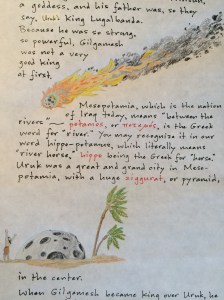 a goddess, and his father was, so they
say, Uruk's king Lugalbanda.
Because he was so strong,
so powerful, Gilgamesh
was not a very
good king
at first.
Mesopotamia, which is the nation
of Iraq today, means "between the
rivers" — potamos, or ποταμός, is the Greek
word for "river." You may recognize it in our
word hippo-potamus, which literally means
"river horse," hippo being the Greek for "horse."
Uruk was a great and grand city in Meso-
potamia, with a huge ziggurat, or pyramid,
in the center.
When Gilgamesh became king over Uruk, he